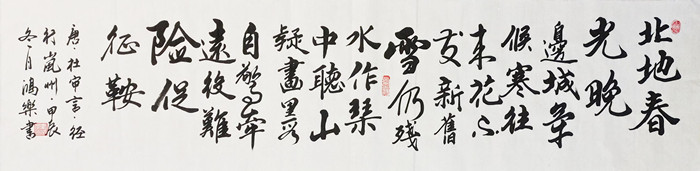 北地春
光晚
邊城氣
候寒往
来花不
发新舊
雪仍残
水作琴
中聽山
疑畫里看
自驚牵
遠役難
险促
征鞍
唐·杜审言·径
行嵐州·甲辰
冬月鴻樂書